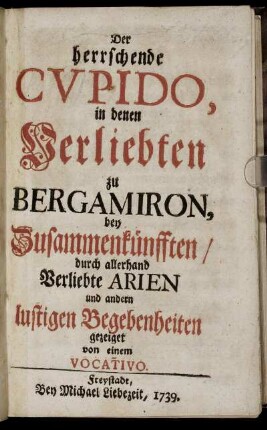 Der
herrschende
CVPIDO,
in denen
Verliebten
zu
BERGAMIRON,
bey
Zusammenkünfften/
durch allerhand
Verliebte ARIEN
und andern
lustigen Begebenheiten
gezeiget
von einem
VOCATIVO.
Freystadt,
Bey Michael Liebezeit, 1739.